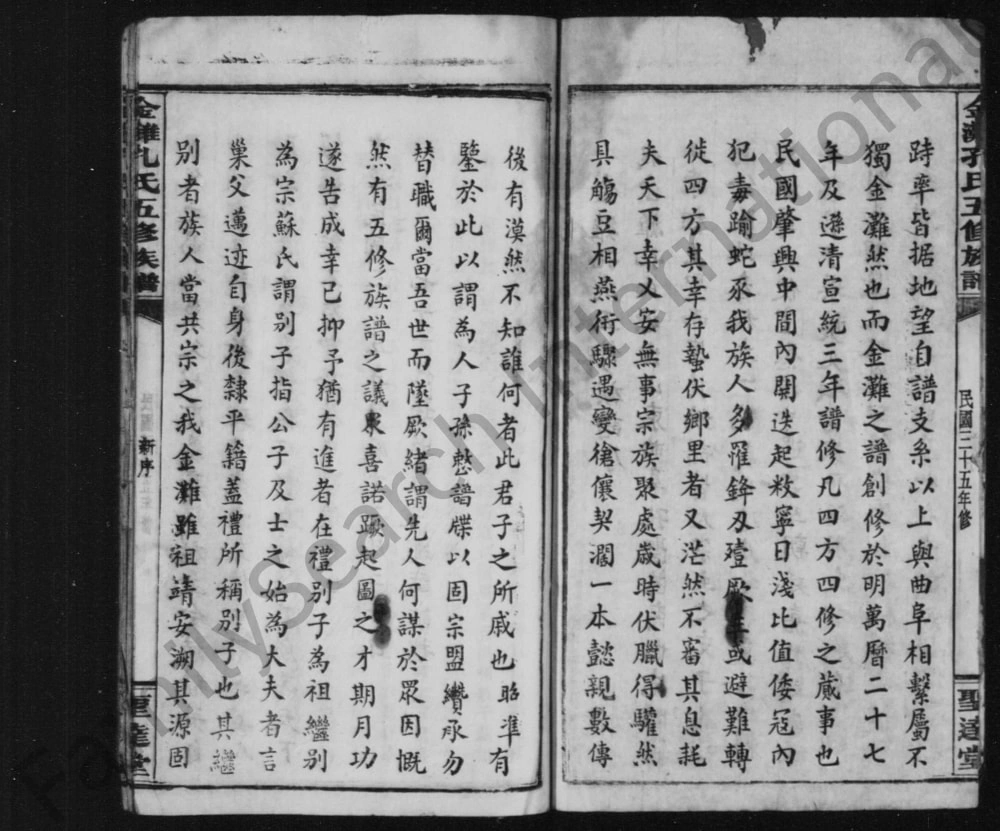 金灘孔氏五修族譜
民國三十五年修
聖達堂
跱率皆据地望自譜支系以上與曲阜相繫屬不
獨金灘然也而金灘之譜創修於明萬曆二十七
年及遜清宣統三年譜修凡四方四修之蕆事也
民國肇興中間內鬨迭起敉寧日淺比值倭寇內
犯毒踰蛇豕我族人多罹鋒刃殪厥 或避難轉
徙四方其幸存蟄伏鄉里者又茫然不審其息耗
夫天下幸乂安無事宗族聚處歲時伏臘得驩然
具觴豆相燕衎驟遇變傖儴契濶一本懿親數傳
後有漠然不知誰何者此君子之所戚也昭準有
鑒於此以謂為人子孫憖譜牒以固宗盟纘承勿
替職爾當吾世而墜厥緒謂先人何謀於眾因慨
然有五修族譜之議眾喜諾蹶起圖之才期月功
遂告成幸已抑予猶有進者在禮別子為祖繼別
為宗蘇氏謂別子指公子及士之始為大夫者言
巢父邁迹自身後隸平籍蓋禮所稱別子也其繼
別者族人當共宗之我金灘雖祖靖安溯其源固
金灘孔氏五修族譜
新序
聖達堂
FamilySearch International